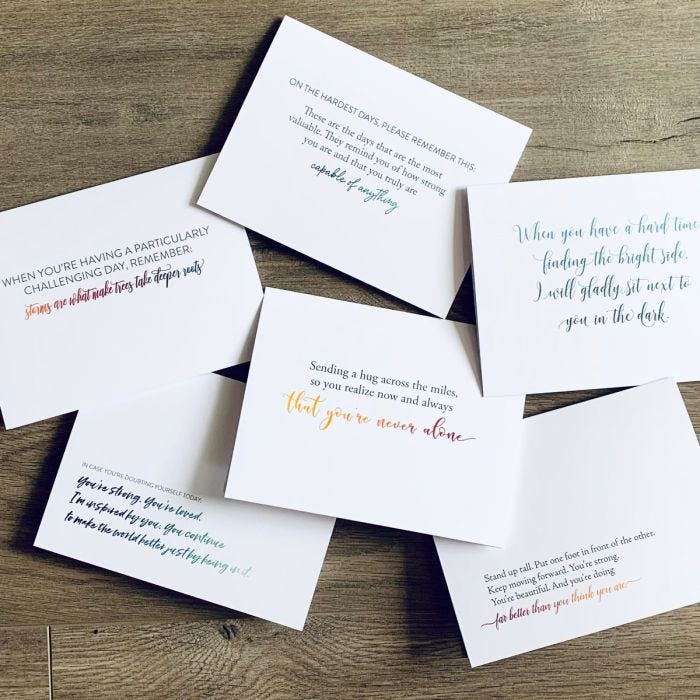 ON THE HARDEST DAYS, PLEASE REMEMBER THIS:
These are the days that are the most
valuable. They remind you of how strong
you are and that you truly are
capable of anything
WHEN YOU'RE HAVING A PARTICULARLY
CHALLENGING DAY, REMEMBER:
storms are what make trees take deeper roots
When you have a hard time
finding the bright side,
I will gladly sit next to
you in the dark.
Sending a hug across the miles,
so you realize now and always
that you're never alone
IN CASE YOU'RE DOUBTING YOURSELF TODAY:
You're strong. You're loved.
I'm inspired by you. You continue
to make the world better just by being in it.
Stand up tall. Put one foot in front of the other.
Keep moving forward. You're strong.
You're beautiful. And you're doing
far better than you think you are.